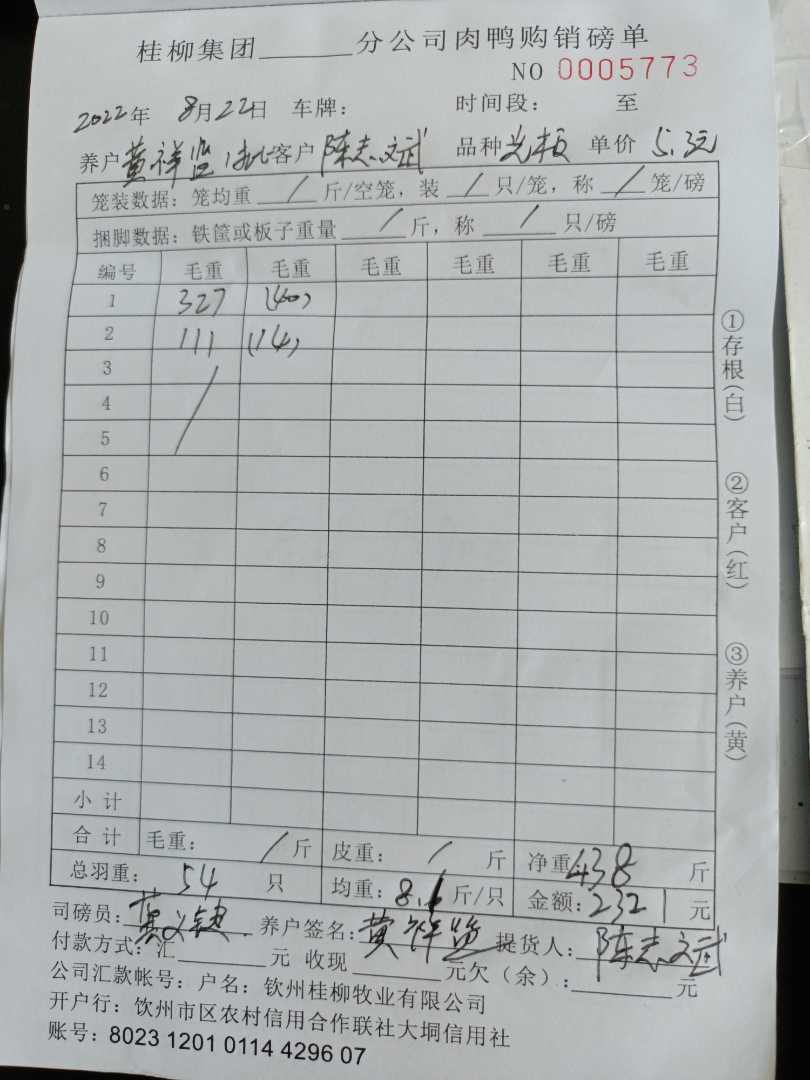 桂柳集团______分公司肉鸭购销磅单
NO 0005773
2022年 8月22日 车牌: 时间段: 至
养户黄祥 客户陈志斌 品种 单价5.3元
笼装数据:笼均重 / 斤/空笼,装 / 只/笼,称 / 笼/磅
捆脚数据:铁筐或板子重量 / 斤,称 / 只/磅
编号 毛重 毛重 毛重 毛重 毛重 毛重
1 327 (40)
2 111 (14)
3 /
4
5
6
7
8
9
10
11
12
13
14
小计
合计 毛重: / 斤 皮重: / 斤 净重:438 斤
总羽重: 54 只 均重:8.1斤/只 金额:2321元
司磅员: 养户签名:黄祥 提货人:陈志斌
付款方式:汇______元 收现______元欠(余):______元
公司汇款帐号:户名:钦州桂柳牧业有限公司
开户行:钦州市区农村信用合作联社大垌信用社
账号:8023 1201 0114 4296 07
①存根(白) ②客户(红) ③养户(黄)